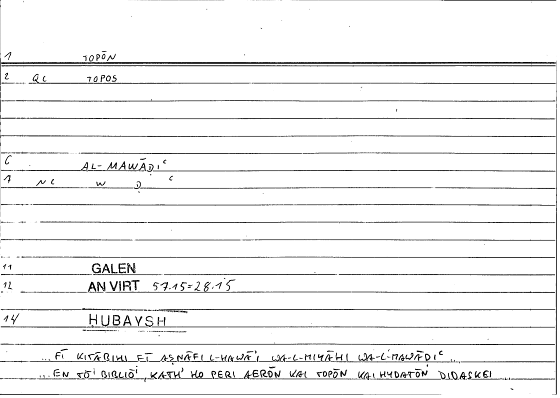 1 TOPŌN
2 QC TOPOS
6 AL-MAWĀḌIʿ
7 NC W Ḍ ʿ
11 GALEN
12 AN VIRT 57.15=28.15
14 ḤUBAYSH
...FĪ KITĀBIHI FĪ AṢNĀFI L-HAWĀʾI WA-L-MIYĀHI WA-L-MAWĀḌIʿ...
...EN TŌʲ BIBLIŌʲ, KATHʾ HO PERI AERŌN KAI TOPŌN KAI HYDATŌN DIDASKEI...